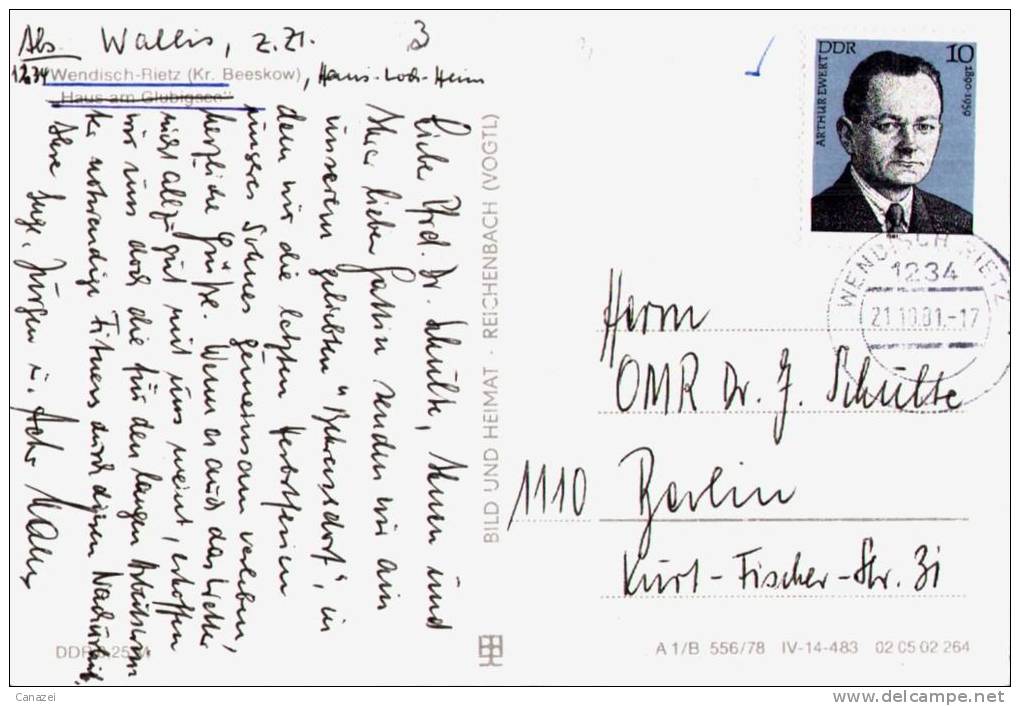 Abs Wallis, z. Zt. 3
1234 Wendisch-Rietz (Kr. Beeskow),
"Haus am Glubigsee"
Liebe Pfrd. Dr. Schülte, Ihnen und
Ihrer lieber Gattin senden wir aus
unserem geliebten
dem wir die letzten Herbstferien
unseres Sohnes gemeinsam verleben,
herzliche Grüße. Wenn es auch das Wetter
nicht allzu gut mit uns meint, erhoffen
wir uns doch die für den langen
notwendige Fitness durch diesen
Ihre Inge, Jürgen u. Wallis
BILD UND HEIMAT · REICHENBACH (VOGTL)
DDR
10
ARTHUR EWERT
1890-1959
WENDISCH-RIETZ
1234
21.10.81.-17
Herrn
OMR Dr. J. Schülte
1110 Berlin
Kurt-Fischer-Str. 31
A 1/B 556/78 IV-14-483 02 05 02 264
Canazei
www.delcampe.net